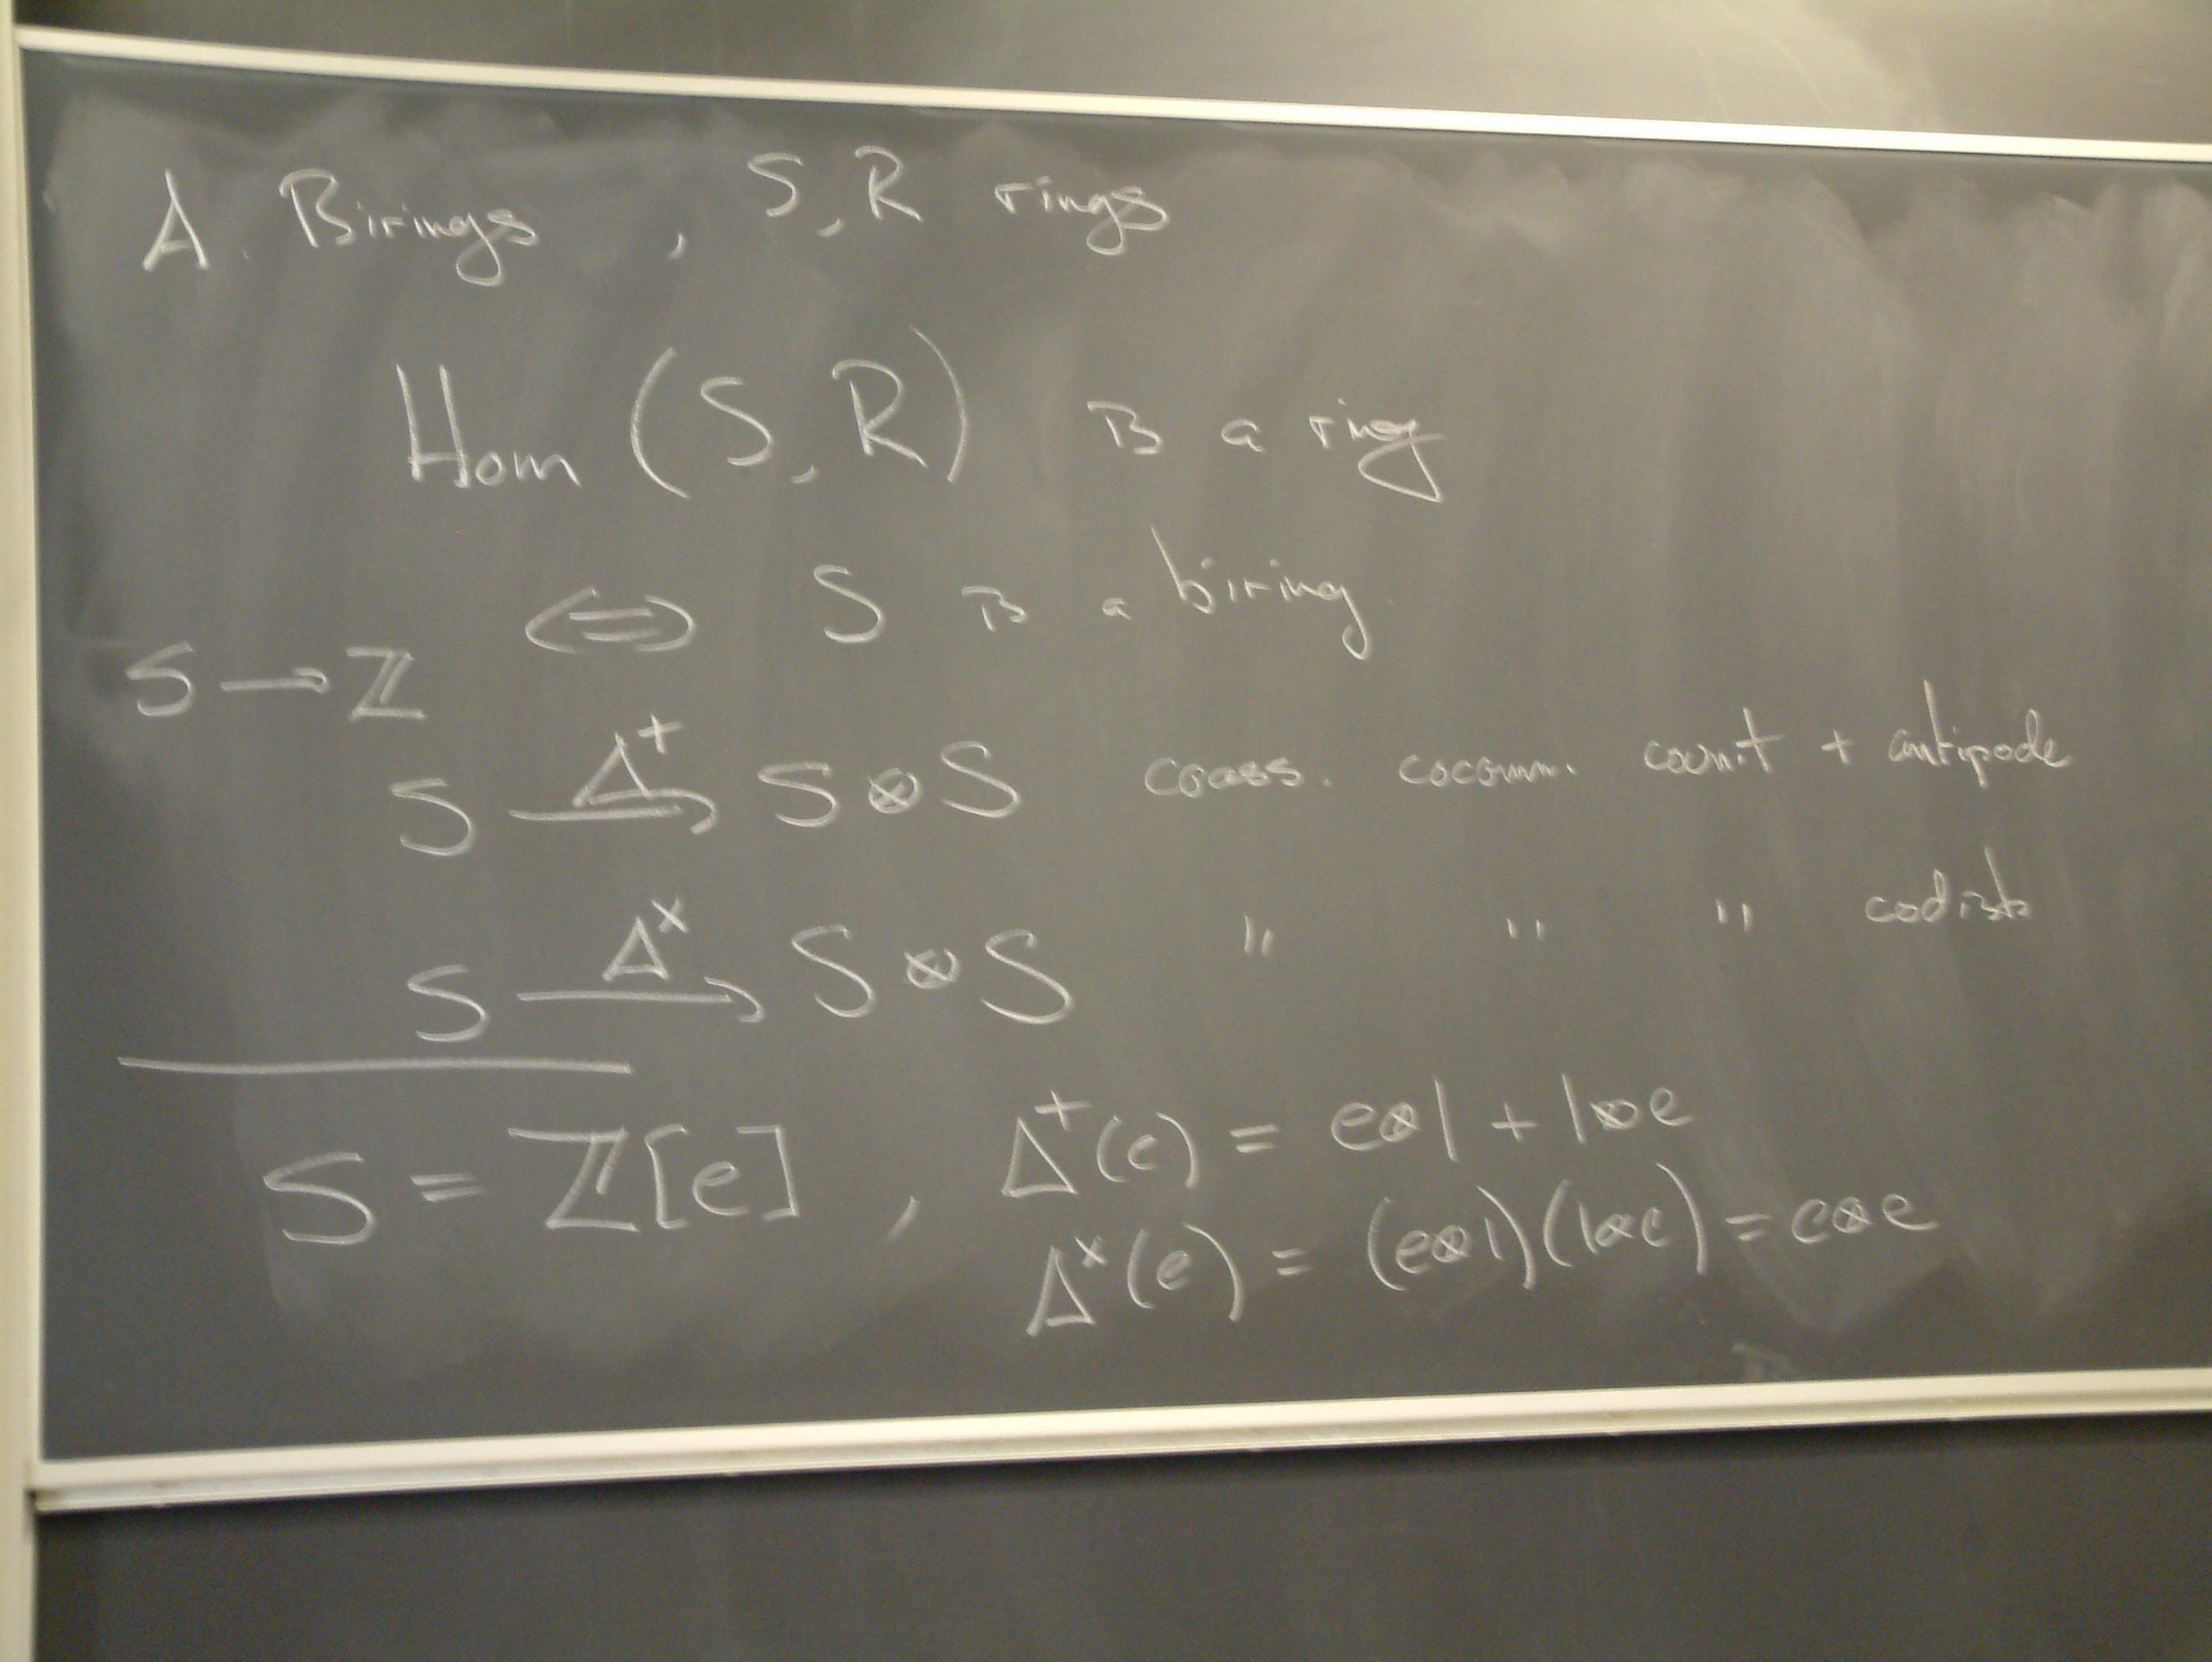 A. Birings, S, R rings
Hom (S, R) is a ring
⟺ S is a biring.
S → ℤ
S —Δ⁺→ S ⊗ S coass. cocomm. counit + antipode
S —Δˣ→ S ⊗ S " " " codistr
S = ℤ[e], Δ⁺(e) = e⊗1 + 1⊗e
Δˣ(e) = (e⊗1)(1⊗e) = e⊗e